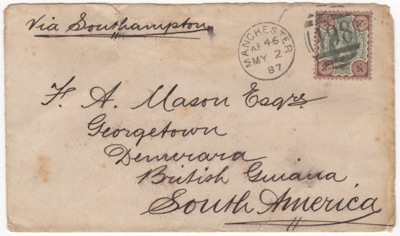 Via Southampton
MANCHESTER
46
MY 2
87
498
F. A. Mason Esqre
Georgetown
Demerara
British Guiana
South America